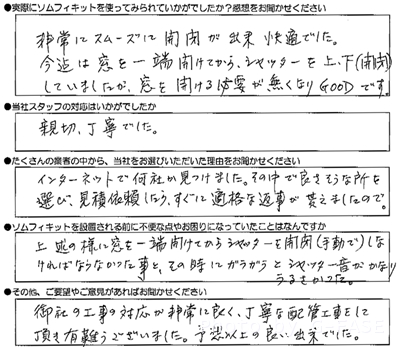 ●実際にソムフィキットを使ってみられていかがでしたか?感想をお聞かせください
非常にスムーズに開閉が出来快適でした。
今迄は窓を一端開けてから、シャッターを上、下(開閉)
していましたが、窓を開ける必要が無くなりGOODです。
●当社スタッフの対応はいかがでしたか
親切、丁寧でした。
●たくさんの業者の中から、当社をお選びいただいた理由をお聞かせください
インターネットで何社か見つけました。その中で良さそうな所を
選び、見積依頼したら、すぐに適格な返事が貰えましたので。
●ソムフィキットを設置される前に不便な点やお困りになっていたことはなんですか
上述の様に窓を一端開けてからシャッターを開閉(手動で)しな
ければならなかった事と、その時にガラガラとシャッター音がかなり
うるさかった。
●その他、ご要望やご意見があればお聞かせください
御社の工事の対応が非常に良く、丁寧な配管工事をして
頂き有難うございました。予想以上の良い出来でした。